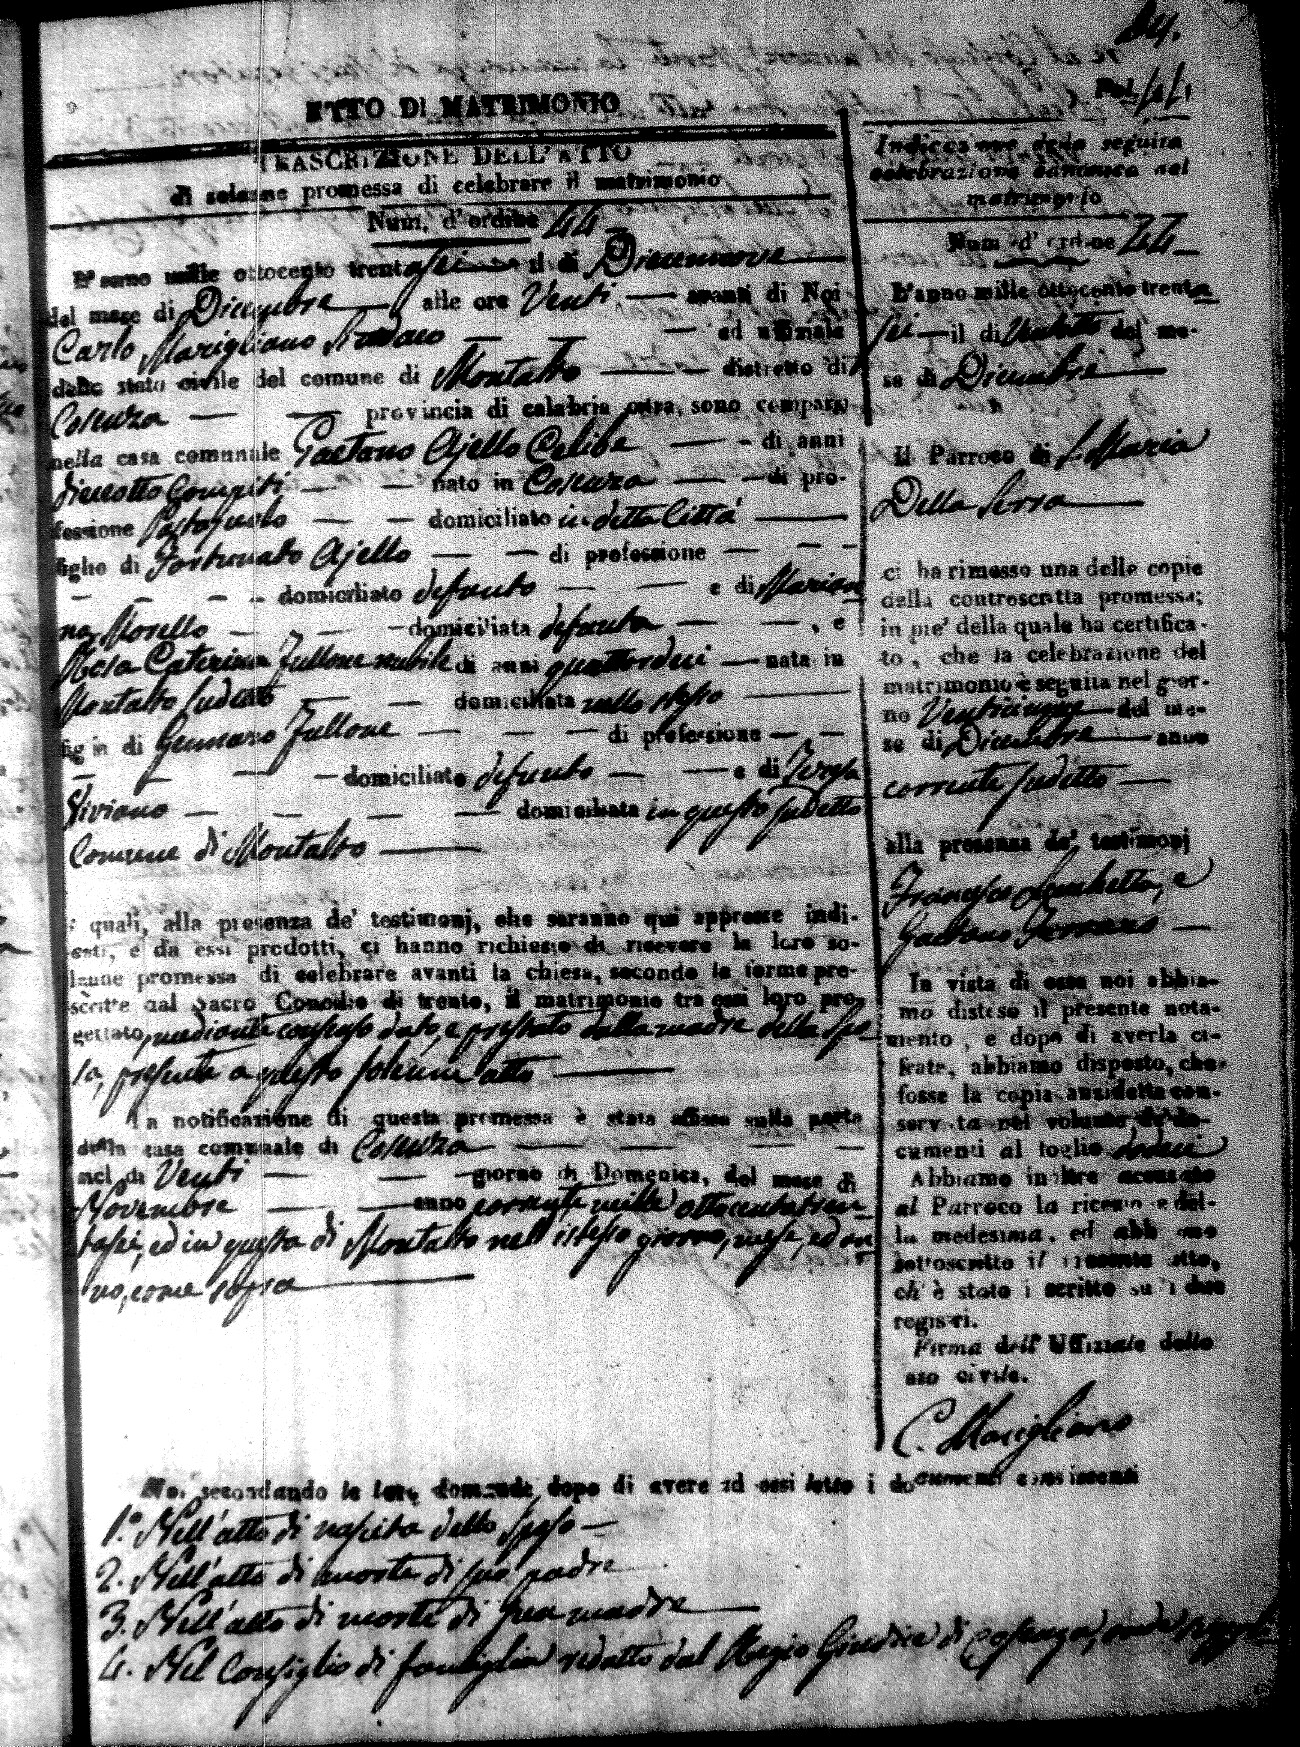 84.
Pol.
ATTO DI MATRIMONIO
TRASCRIZIONE DELL'ATTO
di solenne promessa di celebrare il matrimonio
Num. d'ordine 44
L'anno mille ottocento trentasei il dì Diecennove
del mese di Dicembre alle ore Venti avanti di Noi
Carlo Marigliano Sindaco ed uffiziale
dello stato civile del comune di Montalto distretto di
Cosenza provincia di calabria citra, sono comparsi
nella casa comunale Gaetano Ajello Celibe di anni
dieciotto compiti nato in Cosenza di pro-
fessione domiciliato in detta Città
figlio di Fortunato Ajello di professione
domiciliato defunto e di Marian
na Morello domiciliata defunta , e
Rosa Caterina Fullone nubile di anni quattordeci nata in
Montalto sudetto domiciliata nello stesso
figlia di Gennaro Fullone di professione
domiciliato defunto e di Teresa
Viviano domiciliata in questo sudetto
Comune di Montalto
i quali, alla presenza de' testimonj, che saranno qui appresse indi-
cati, e da essi prodotti, ci hanno richiesto di ricevere la loro so-
lenne promessa di celebrare avanti la chiesa, secondo le forme pre-
scritte dal Sacro Concilio di trento, il matrimonio tra essi loro pro-
gettato, mediante consenso dato, e prestato dalla madre della Spo
sa, presente a questo solenne atto
La notificazione di questa promessa è stata affissa sulla porta
della casa comunale di Cosenza
nel dì Venti giorno di Domenica, del mese di
Novembre anno corrente mille ottocentotren
tasei, ed in questa di Montalto nell'istesso giorno, mese, ed an
no, come sopra
Indicazione della seguita
celebrazione canonica del
matrimonio
Num. d'ordine 44
L'anno mille ottocento trenta
sei il dì Ventotto del me-
se di Dicembre
Il Parroco di S. Maria
Della Serra
ci ha rimesso una delle copie
della controscritta promessa;
in pie' della quale ha certifica-
to, che la celebrazione del
matrimonio è seguita nel gior-
no Venticinque del me-
se di Dicembre anno
corrente sudetto
alla presenza de' testimonj
Francesco e
Gaetano
In vista di essa noi abbia-
mo disteso il presente nota-
mento, e dopo di averla ci-
frata, abbiamo disposto, che
fosse la copia anzidetta con-
servata nel volume de' do-
cumenti al foglio dodeci
Abbiamo inoltre accusato
al Parroco la ricezione del-
la medesima, ed abbiamo
sottoscritto il presente atto,
ch'è stato iscritto su i due
registri.
Firma dell'Uffiziale dello
stato civile.
C. Marigliano
Noi secondando le loro domande dopo di avere ad essi letto i documenti consistenti
1.° Nell'atto di nascita dello Sposo
2. Nell'atto di morte di suo padre
3. Nell'atto di morte di sua madre
4. Nel Consiglio di famiglia redatto dal Regio Giudice di Cosenza,